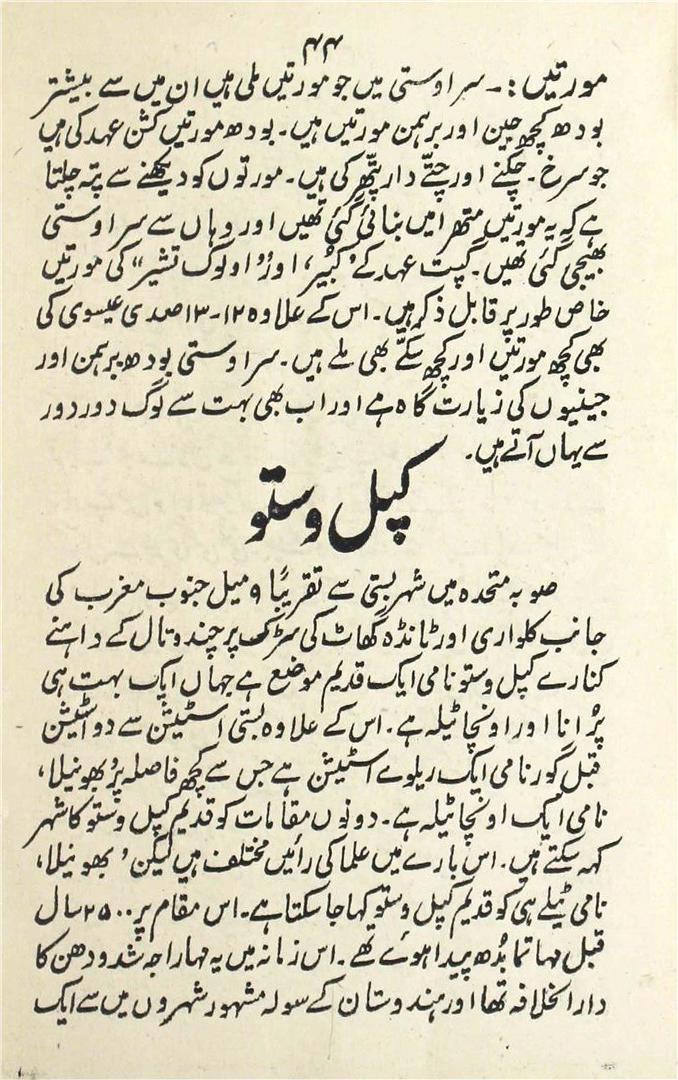 ۴۴
مورتیں :۔ سراوستی میں جو مورتیں ملی ہیں ان میں سے بیشتر
بودھ کچھ جین اور برہمن مورتیں ہیں۔ بودھ مورتیں کشن عہد کی ہیں
جو سرخ۔ چکنے اور چتّے دار پتّھر کی ہیں۔ مورتوں کو دیکھنے سے پتہ چلتا
ہے کہ یہ مورتیں متھرا میں بنائی گئی تھیں اور وہاں سے سراوستی
بھیجی گئی تھیں۔ گپت عہد کے ’کُبیر‘ اور ’اولوک تشیر‘ کی مورتیں
خاص طور پر قابل ذکر ہیں۔ اس کے علاوہ ۱۲۔۱۳ صدی عیسوی کی
بھی کچھ مورتیں اور کچھ سکّے بھی ملے ہیں۔ سراوستی بودھ برہمن اور
جینیوں کی زیارت گاہ ہے اور اب بھی بہت سے لوگ دور دور
سے یہاں آتے ہیں۔
کپل وستو
صوبہ متحدہ میں شہر بستی سے تقریباً ۹ میل جنوب مغرب کی
جانب کلواری اور ٹانڈہ گھاٹ کی سڑک پر چندوتال کے داہنے
کنارے کپل وستو نامی ایک قدیم موضع ہے جہاں ایک بہت ہی
پُرانا اور اونچا ٹیلہ ہے۔ اس کے علاوہ بستی اسٹیشن سے دو اسٹیشن
قبل گور نامی ایک ریلوے اسٹیشن ہے جس سے کچھ فاصلہ پر ’بھونیلا‘
نامی ایک اونچا ٹیلہ ہے۔ دونوں مقامات کو قدیم کپل وستو کا شہر
کہہ سکتے ہیں۔ اس بارے میں علما کی رائیں مختلف ہیں لیکن ’بھونیلا‘
نامی ٹیلے ہی کو قدیم کپل وستو کہا جا سکتا ہے۔ اس مقام پر ۲۵۰۰ سال
قبل مہاتما بُدھ پیدا ہوئے تھے۔ اس زمانہ میں یہ مہاراجہ شدودھن کا
دارالخلافہ تھا اور ہندوستان کے سولہ مشہور شہروں میں سے ایک